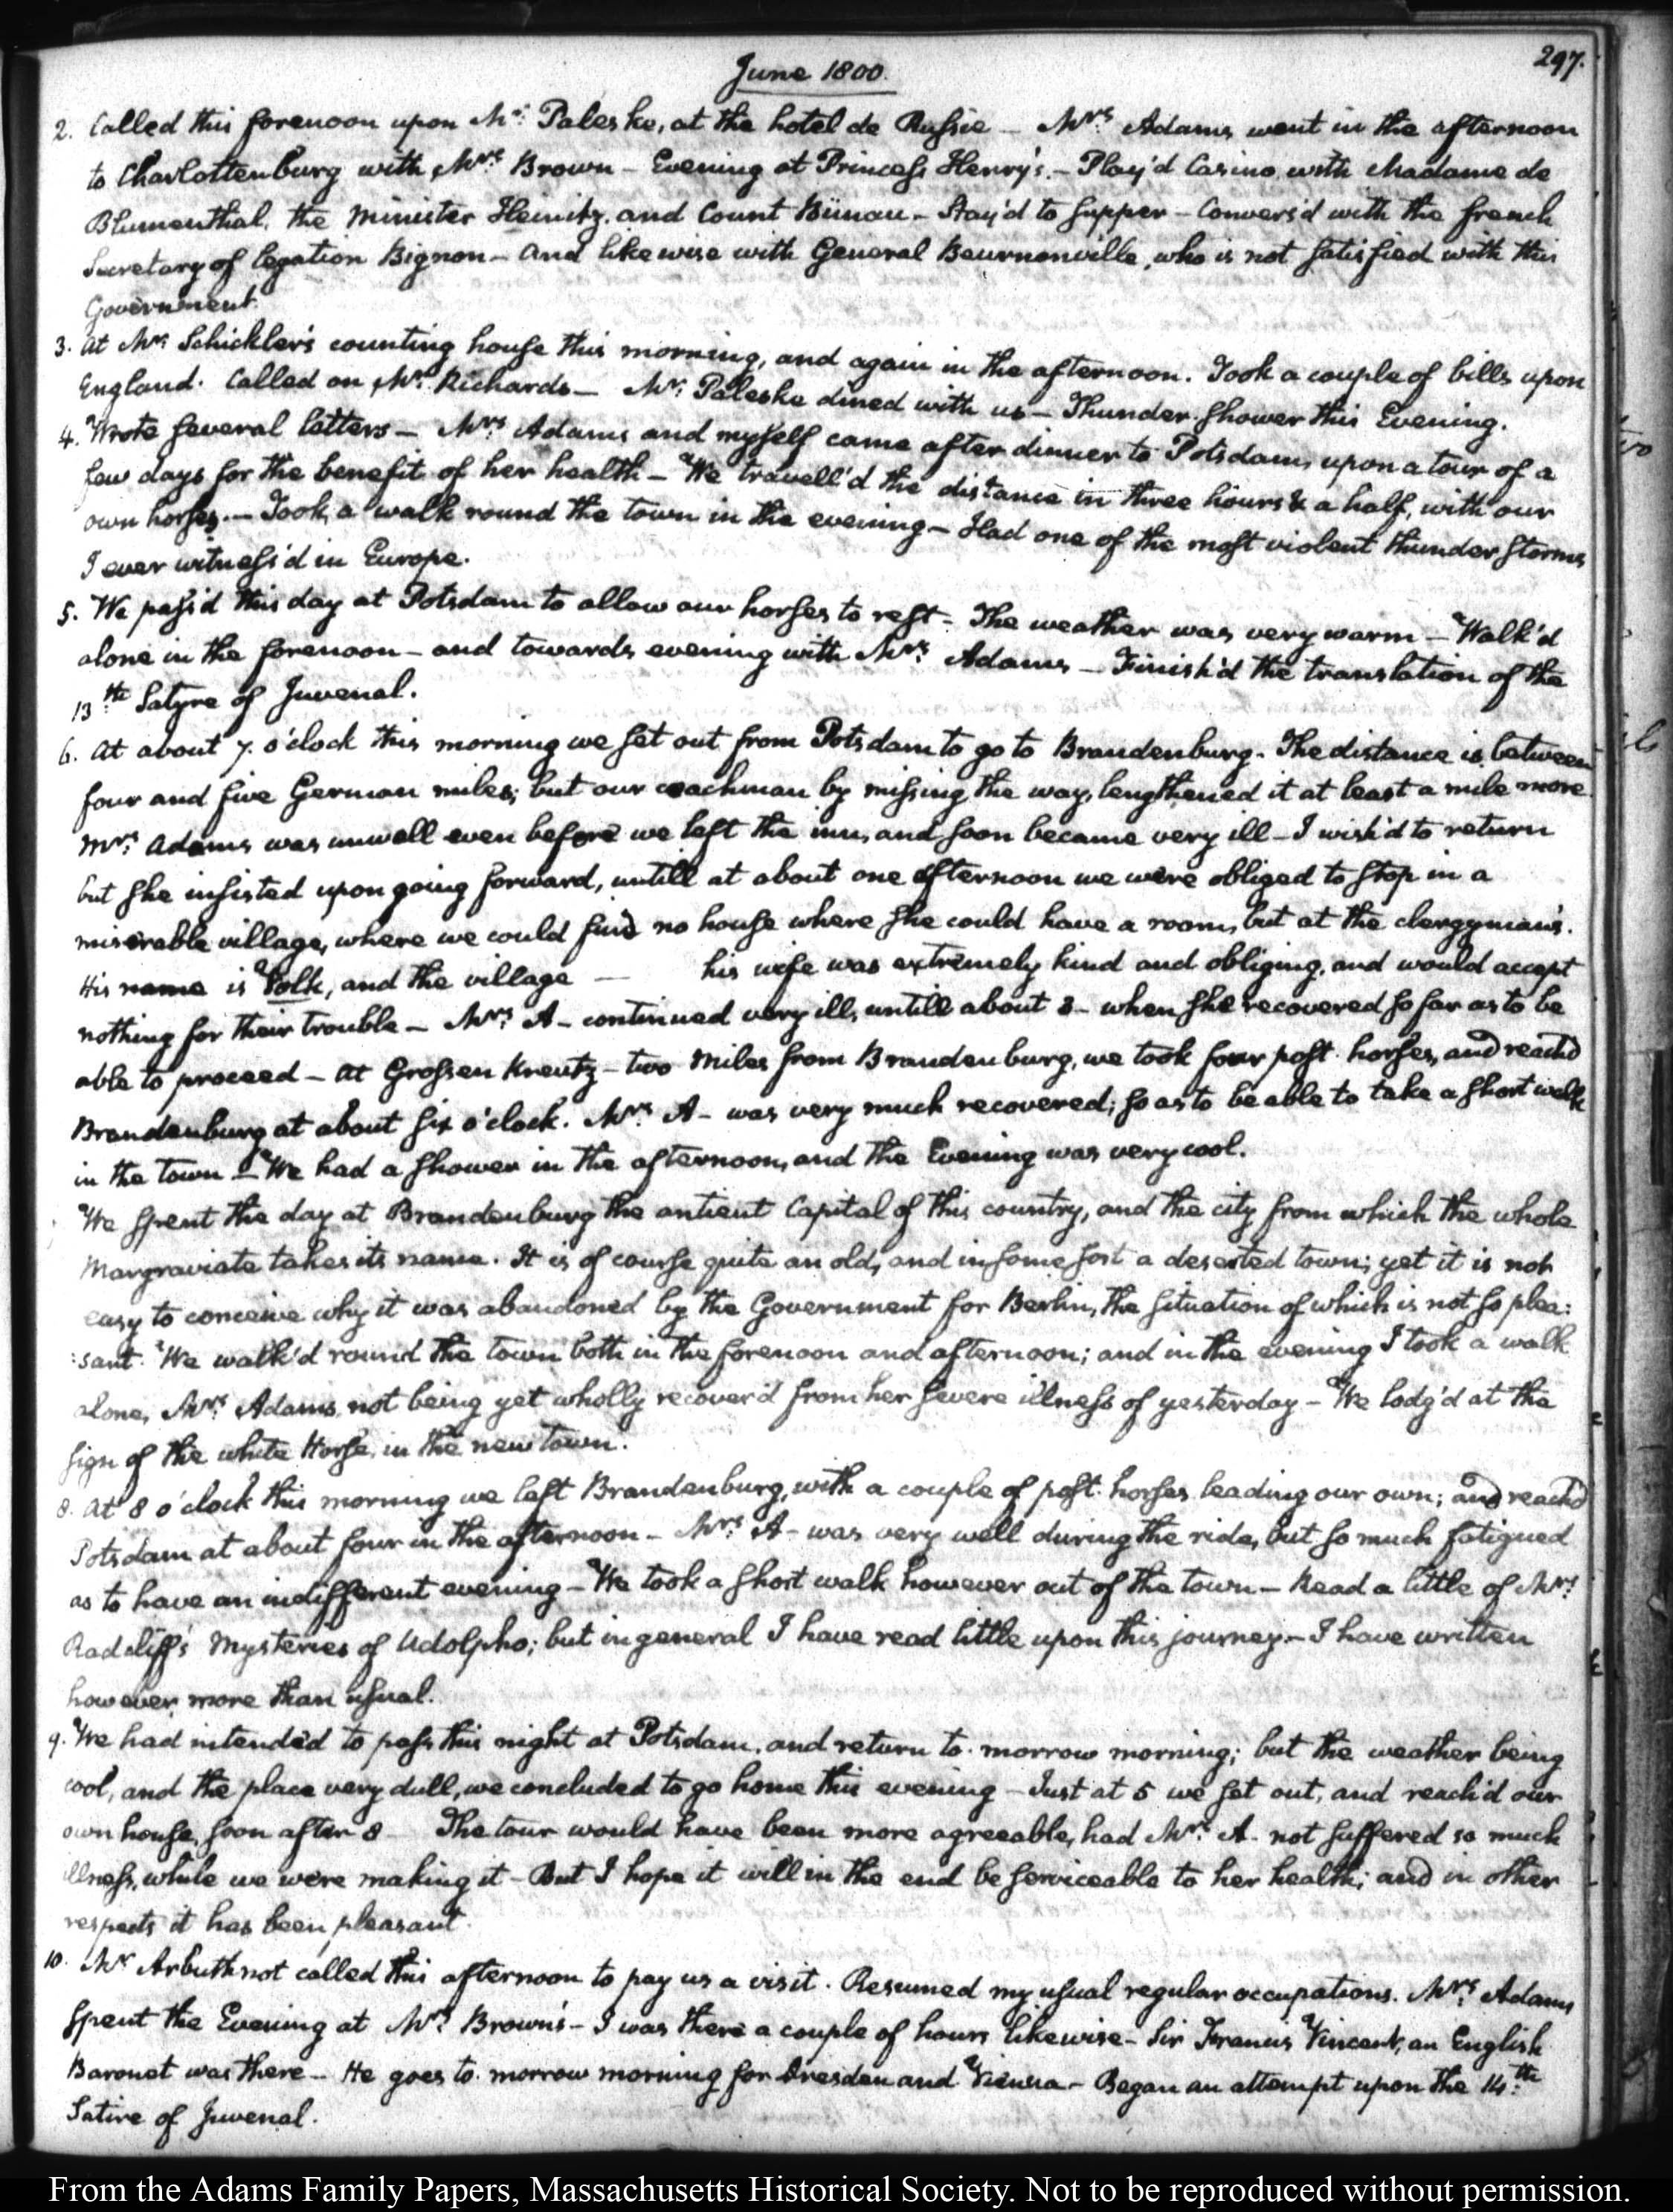 297.
June 1800.
2. Called this forenoon upon Mr: Paleske, at the hotel de Russie — Mrs: Adams went in the afternoon
to Charlottenburg with Mrs: Brown — Evening at Princess Henry's. — Play'd Casino with Madame de
Blumenthal, the Minister Heinitz, and Count Bünau — Stay'd to supper — Convers'd with the french
Secretary of legation Bignon — And likewise with General Beurnonville, who is not satisfied with this
Government.
3. At Mr: Schickler's counting house this morning, and again in the afternoon. Took a couple of bills upon
England. Called on Mr: Richards — Mr: Paleske dined with us — Thunder-shower this Evening.
4. Wrote several letters — Mrs: Adams and myself came after dinner to Potsdam, upon a tour of a
few days for the benefit of her health — We travell'd the distance in three hours & a half, with our
own horses. — Took a walk round the town in the evening — Had one of the most violent thunder storms
I ever witness'd in Europe.
5. We pass'd this day at Potsdam to allow our horses to rest — The weather was very warm — Walk'd
alone in the forenoon — and towards evening with Mrs: Adams — Finish'd the translation of the
13th: Satyre of Juvenal.
6. At about 7. o'clock this morning we set out from Potsdam to go to Brandenburg. The distance is between
four and five German miles; but our coachman by missing the way, lengthened it at least a mile more.
Mrs: Adams was unwell even before we left the inn, and soon became very ill — I wish'd to return
but she insisted upon going forward, untill at about one afternoon we were obliged to stop in a
miserable village, where we could find no house where she could have a room, but at the clergyman's.
His name is Volk, and the village — his wife was extremely kind and obliging, and would accept
nothing for their trouble — Mrs: A — continued very ill, untill about 3 — when she recovered so far as to be
able to proceed — At Grossen Kreutz — two Miles from Brandenburg, we took four post-horses, and reach'd
Brandenburg at about six o'clock. Mrs: A — was very much recovered; so as to be able to take a short walk
in the town — We had a shower in the afternoon, and the Evening was very cool.
We spent the day at Brandenburg the antient Capital of this country, and the city from which the whole
Margraviate takes its name. It is of course quite an old, and in some sort a deserted town; yet it is not
easy to conceive why it was abandoned by the Government for Berlin, the situation of which is not so plea:
:sant. We walk'd round the town both in the forenoon and afternoon; and in the evening I took a walk
alone, Mrs: Adams not being yet wholly recover'd from her severe illness of yesterday — We lodg'd at the
sign of the white Horse, in the new town.
8. At 8 o'clock this morning we left Brandenburg, with a couple of post-horses leading our own; and reach'd
Potsdam at about four in the afternoon — Mrs: A — was very well during the ride, but so much fatigued
as to have an indifferent evening — We took a short walk however out of the town — Read a little of Mrs:
Radcliff's Mysteries of Udolpho; but in general I have read little upon this journey. — I have written
however more than usual.
9. We had intended to pass this night at Potsdam, and return to-morrow morning; but the weather being
cool, and the place very dull, we concluded to go home this evening — Just at 5 we set out, and reach'd our
own house, soon after 8 — The tour would have been more agreeable, had Mrs: A. not suffered so much
illness, while we were making it — But I hope it will in the end be serviceable to her health; and in other
respects it has been pleasant.
10. Mr Arbuthnot called this afternoon to pay us a visit. Resumed my usual regular occupations. Mrs: Adams
spent the Evening at Mrs: Brown's — I was there a couple of hours likewise — Sir Francis Vincent, an English
Baronet was there — He goes to-morrow morning for Dresden and Vienna — Began an attempt upon the 14:th
Satire of Juvenal.
From the Adams Family Papers, Massachusetts Historical Society. Not to be reproduced without permission.